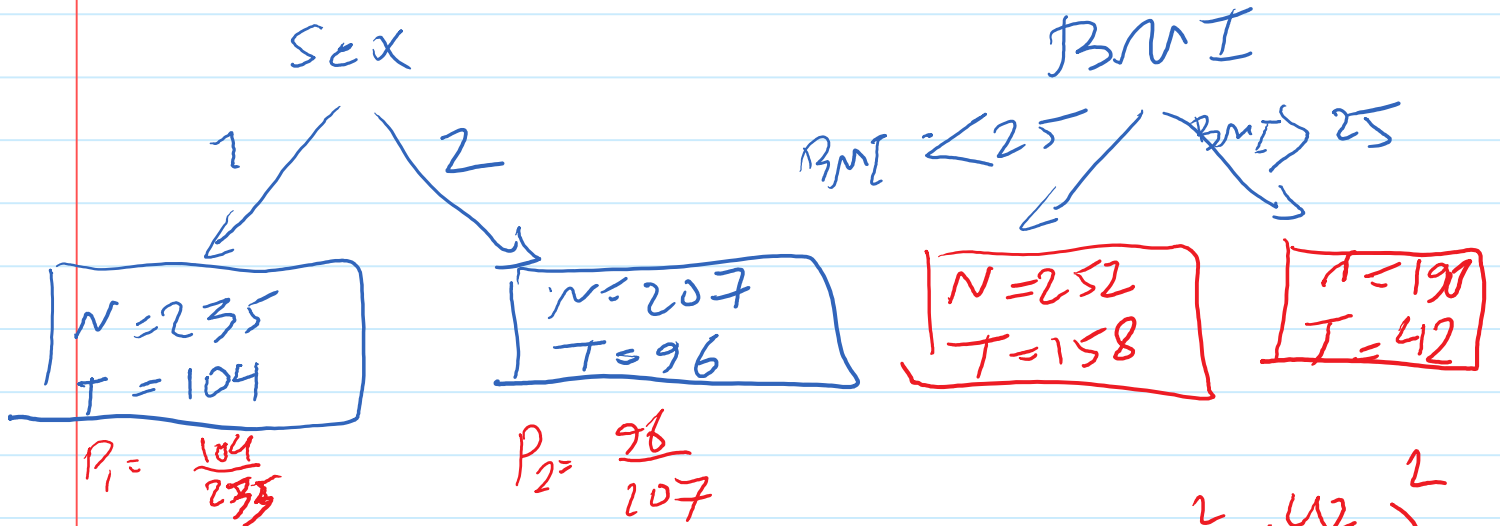 Sex
1
2
N = 235
T = 104
N = 207
T = 96
P1 = 104/235
P2 = 96/207
BMI
BMI < 25
BMI > 25
N = 252
T = 158
= 190
T = 42
2
2
42